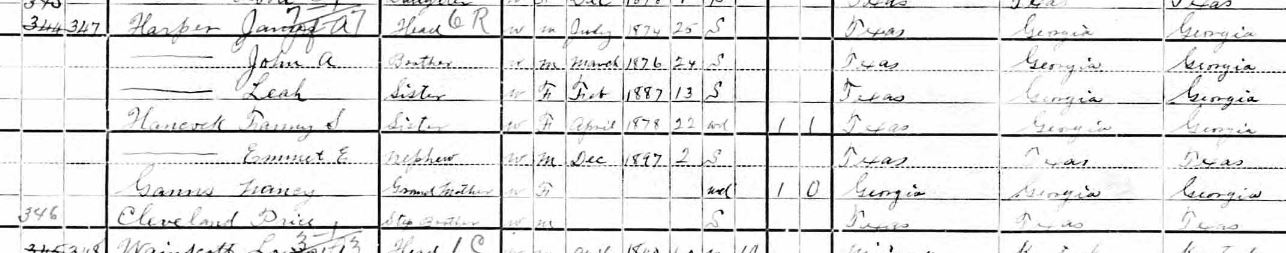 343 Texas Texas Texas
344 347 Harper James A Head C R W M July 1874 25 S Texas Georgia Georgia
John A Brother W M March 1876 24 S Texas Georgia Georgia
Leah Sister W F Feb 1887 13 S Texas Georgia Georgia
Hancock Fanny S Sister W F April 1878 22 wd 1 1 Texas Georgia Georgia
Emmet E Nephew W M Dec 1897 2 S Texas Texas Texas
Ganns Nancy Grand Mother W F wd 1 0 Georgia Georgia Georgia
346 Cleveland Price Step Brother W M S Texas Texas Texas
345 348 Wainscott Head 1 C